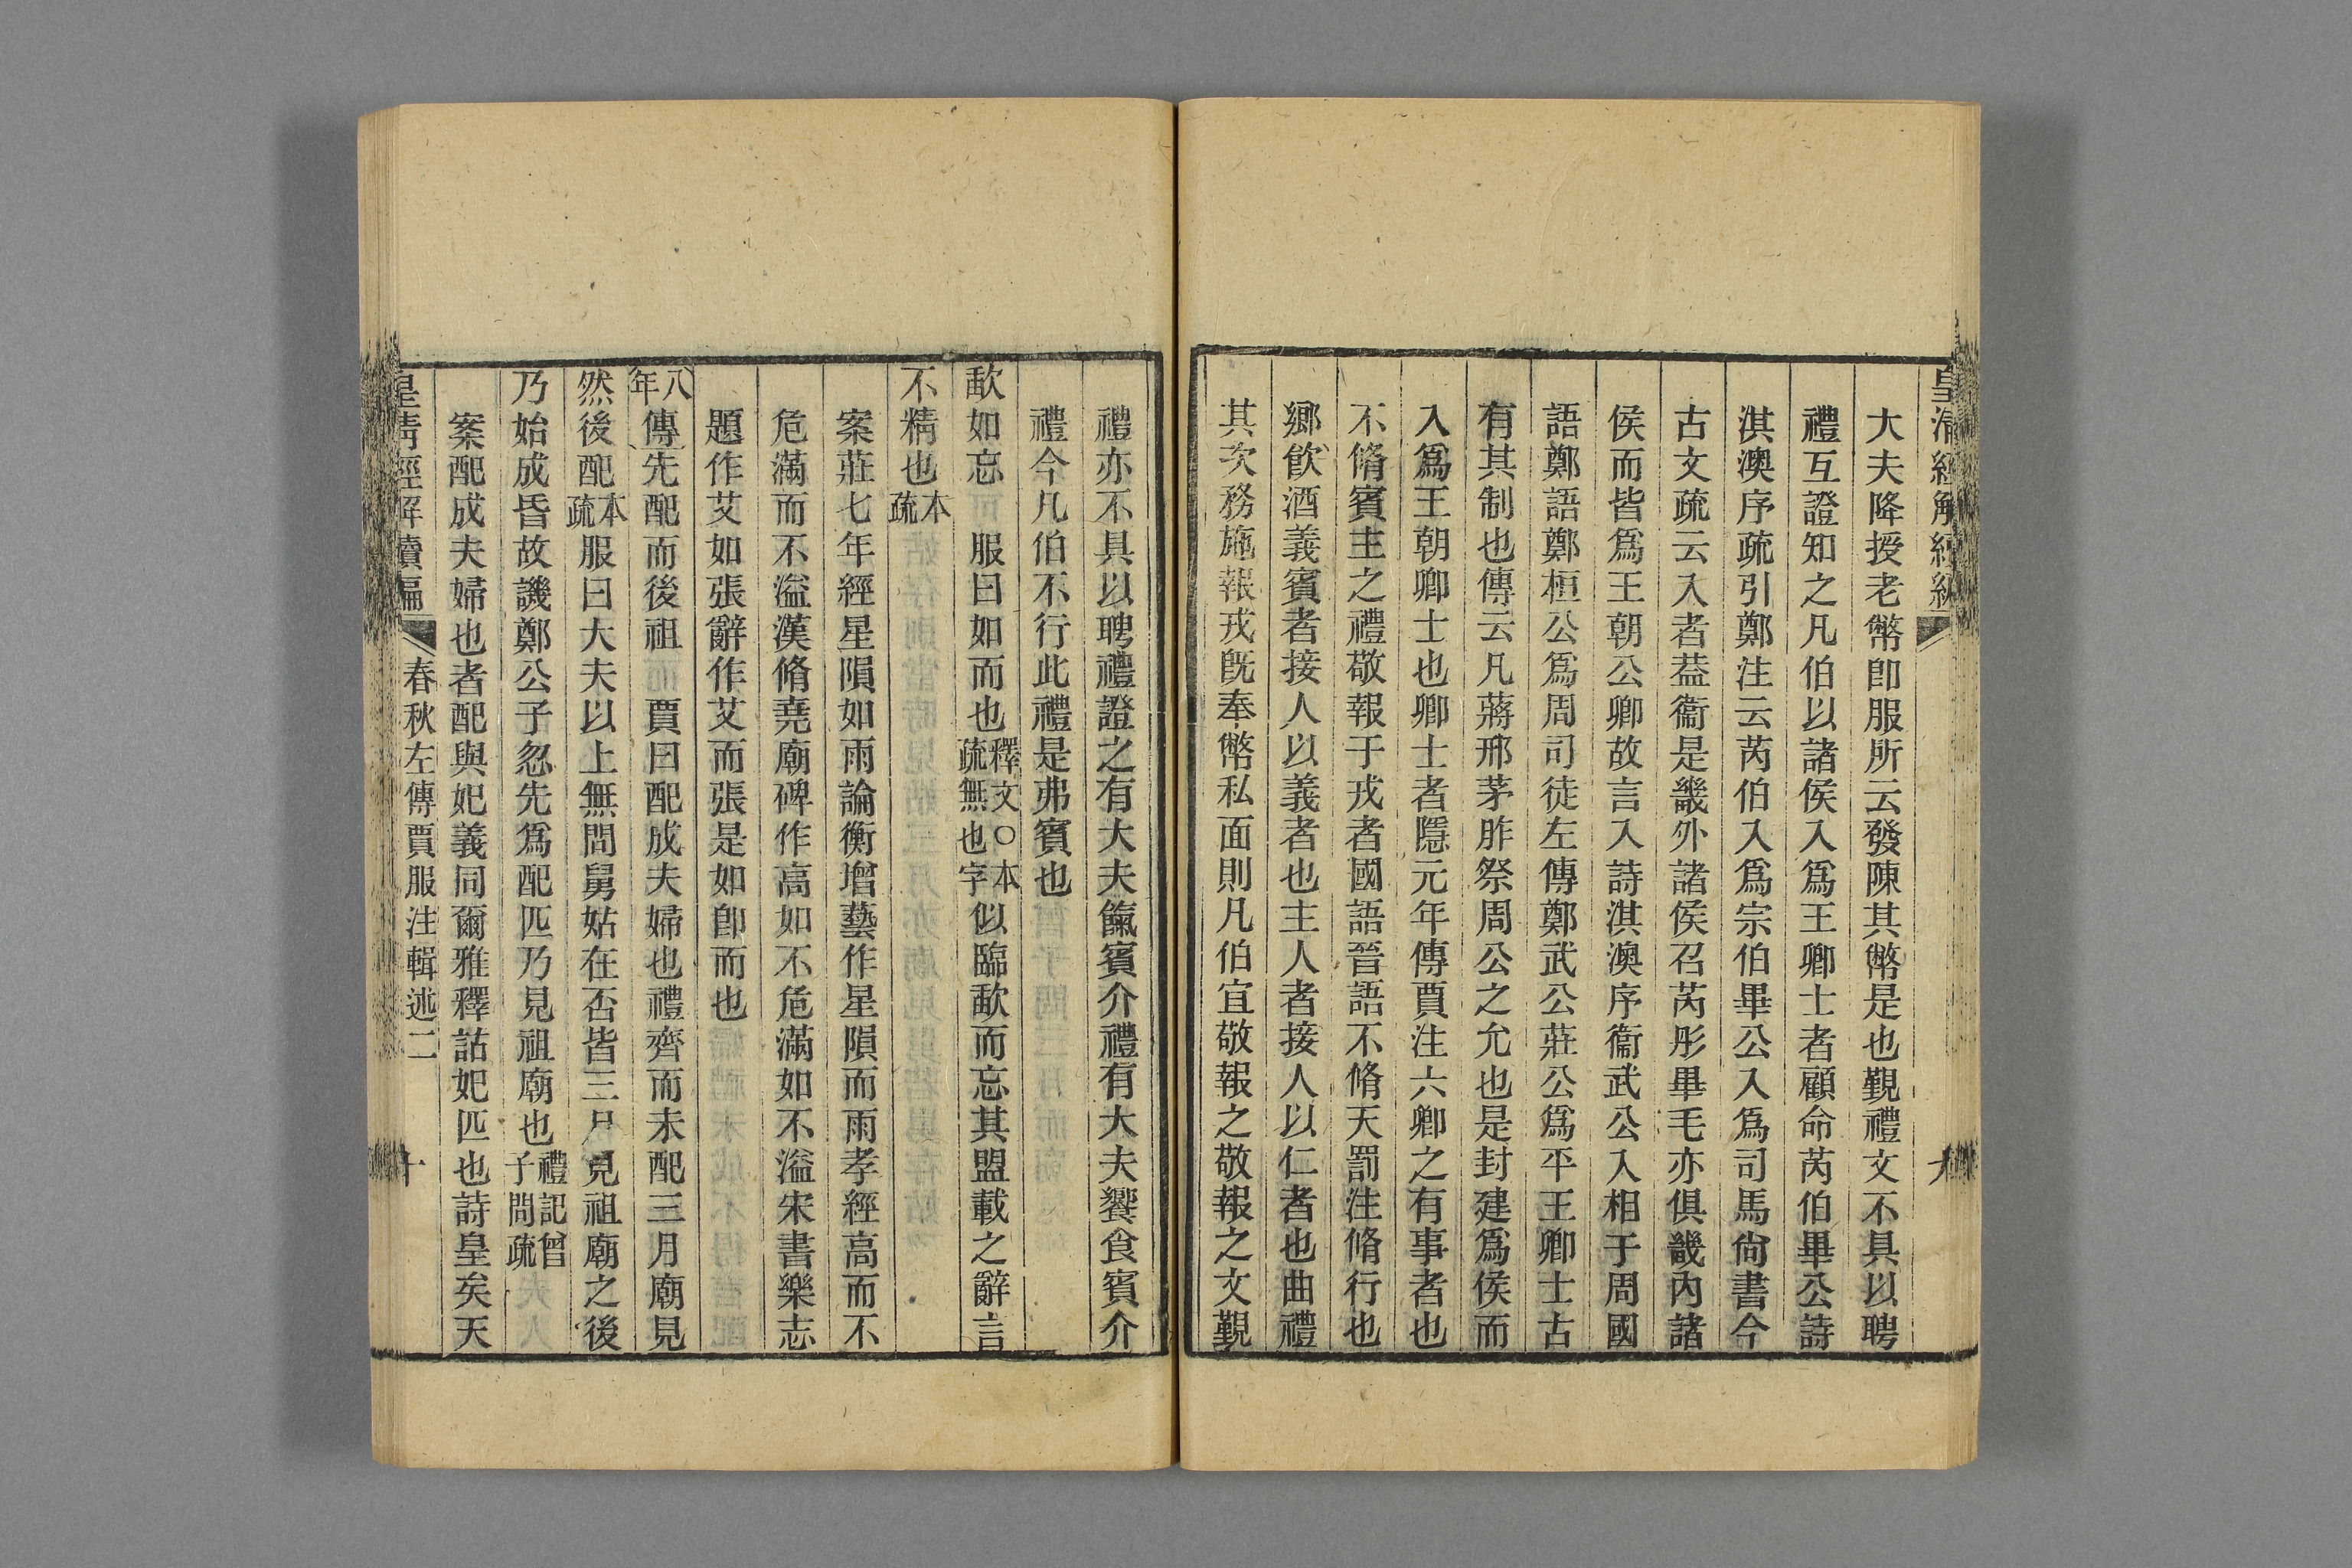 皇清經解續編
九
大夫降授老幣卽服所云發陳其幣是也覲禮文不具以聘
禮互證知之凡伯以諸侯入爲王卿士者顧命芮伯畢公詩
淇澳序疏引鄭注云芮伯入爲宗伯畢公入爲司馬尙書今
古文疏云入者葢衞是畿外諸侯召芮彤畢毛亦俱畿內諸
侯而皆爲王朝公卿故言入詩淇澳序衞武公入相于周國
語鄭語鄭桓公爲周司徒左傳鄭武公莊公爲平王卿士古
有其制也傳云凡蔣邢茅胙祭周公之允也是封建爲侯而
入爲王朝卿士也卿士者隱元年傳賈注六卿之有事者也
不脩賓主之禮敬報于戎者國語晉語不脩天罰注脩行也
鄉飮酒義賓者接人以義者也主人者接人以仁者也曲禮
其次務施報戎旣奉幣私面則凡伯宜敬報之敬報之文覲
禮亦不具以聘禮證之有大夫餼賓介禮有大夫饗食賓介
禮今凡伯不行此禮是弗賓也
歃如忘 服曰如而也釋文○本疏無也字似臨歃而忘其盟載之辭言
不精也本疏
案莊七年經星隕如雨論衡增藝作星隕而雨孝經高而不
危滿而不溢漢脩堯廟碑作高如不危滿如不溢宋書樂志
題作艾如張辭作艾而張是如卽而也
八年傳先配而後祖 賈曰配成夫婦也禮齊而未配三月廟見
然後配本疏服曰大夫以上無問舅姑在否皆三月見祖廟之後
乃始成昏故譏鄭公子忽先爲配匹乃見祖廟也禮記曾子問疏
案配成夫婦也者配與妃義同爾雅釋詁妃匹也詩皇矣天
皇淸經解續編
春秋左傳賈服注輯述二
十